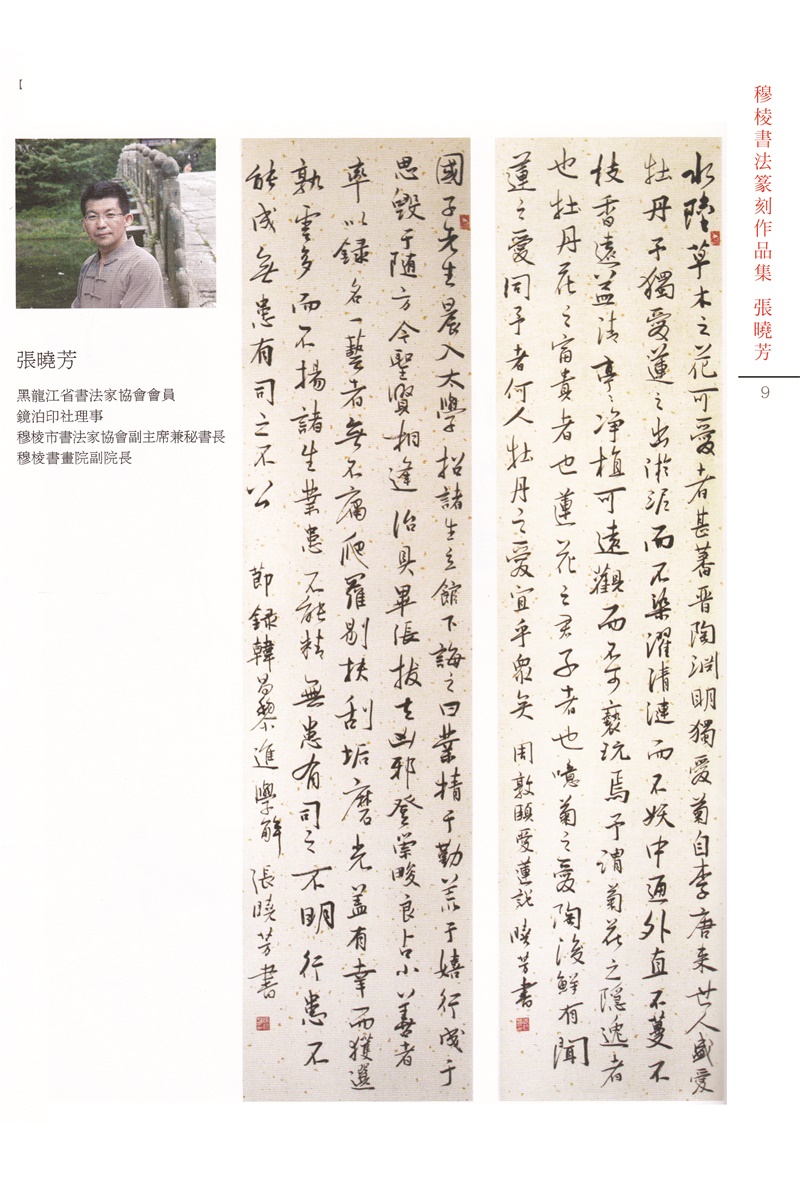 穆棱書法篆刻作品集 張曉芳
9
水陸草木之花可愛者甚蕃晉陶淵明獨愛菊自李唐來世人盛愛
牡丹予獨愛蓮之出淤泥而不染濯清漣而不妖中通外直不蔓不
枝香遠益清亭〻净植可遠觀而不可褻玩焉予謂菊花之隱逸者
也牡丹花之富貴者也蓮花之君子者也噫菊之愛陶後鮮有聞
蓮之愛同予者何人牡丹之愛宜乎衆矣 周敦頤愛蓮説 曉芳書
國子先生晨入太學招諸生立館下誨之曰業精于勤荒于嬉行成于
思毀于随方今聖賢相逢治具畢張拔去凶邪登崇畯良占小善者
率以録名一藝者無不庸爬羅剔抉刮垢磨光蓋有幸而獲選
孰雲多而不揚諸生業患不能精無患有司之不明行患不
能成無患有司之不公 節録韓昌黎進學解 張曉芳書
張曉芳
黑龍江省書法家協會會員
鏡泊印社理事
穆棱市書法家協會副主席兼秘書長
穆棱書畫院副院長